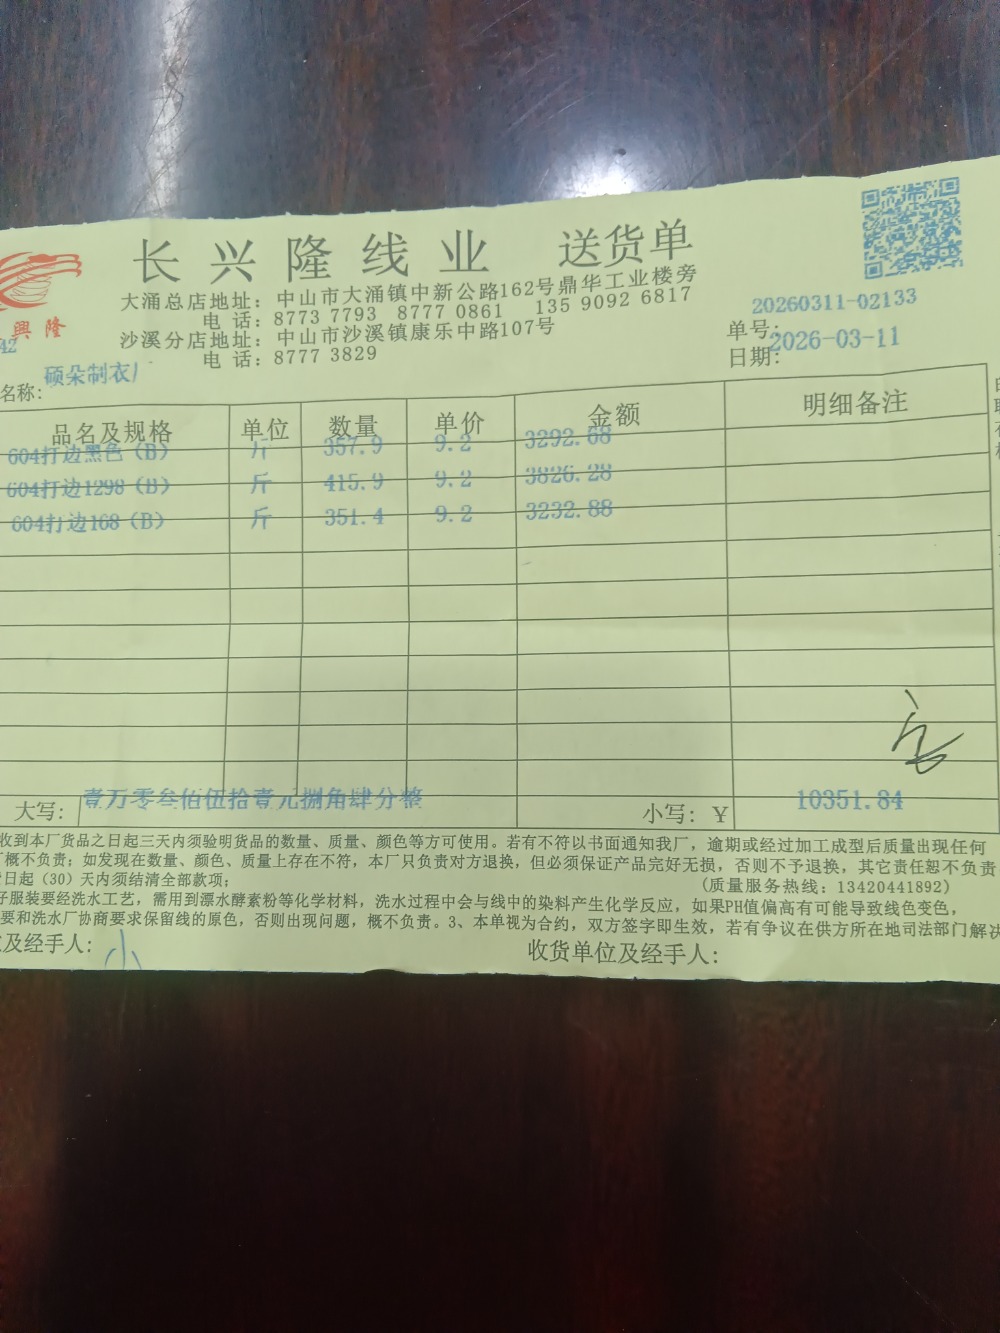 长兴隆线业 送货单
興隆
大涌总店地址：中山市大涌镇中新公路162号鼎华工业楼旁
电 话：8773 7793 8777 0861 135 9092 6817
沙溪分店地址：中山市沙溪镇康乐中路107号
电 话：8777 3829
单号：20260311-02133
日期：2026-03-11
42
名称：硕朵制衣厂
品名及规格 单位 数量 单价 金额 明细备注
604打边黑色（B） 斤 357.9 9.2 3292.68
604打边1298（B） 斤 415.9 9.2 3826.28
604打边168（B） 斤 351.4 9.2 3232.88
大写：壹万零叁佰伍拾壹元捌角肆分整 小写：￥ 10351.84
收到本厂货品之日起三天内须验明货品的数量、质量、颜色等方可使用。若有不符以书面通知我厂，逾期或经过加工成型后质量出现任何
概不负责；如发现在数量、颜色、质量上存在不符，本厂只负责对方退换，但必须保证产品完好无损，否则不予退换，其它责任恕不负责
日起（30）天内须结清全部款项；
(质量服务热线：13420441892)
服装要经洗水工艺，需用到漂水酵素粉等化学材料，洗水过程中会与线中的染料产生化学反应，如果PH值偏高有可能导致线色变色，
要和洗水厂协商要求保留线的原色，否则出现问题，概不负责。3、本单视为合约，双方签字即生效，若有争议在供方所在地司法部门解决
及经手人： 小 收货单位及经手人：